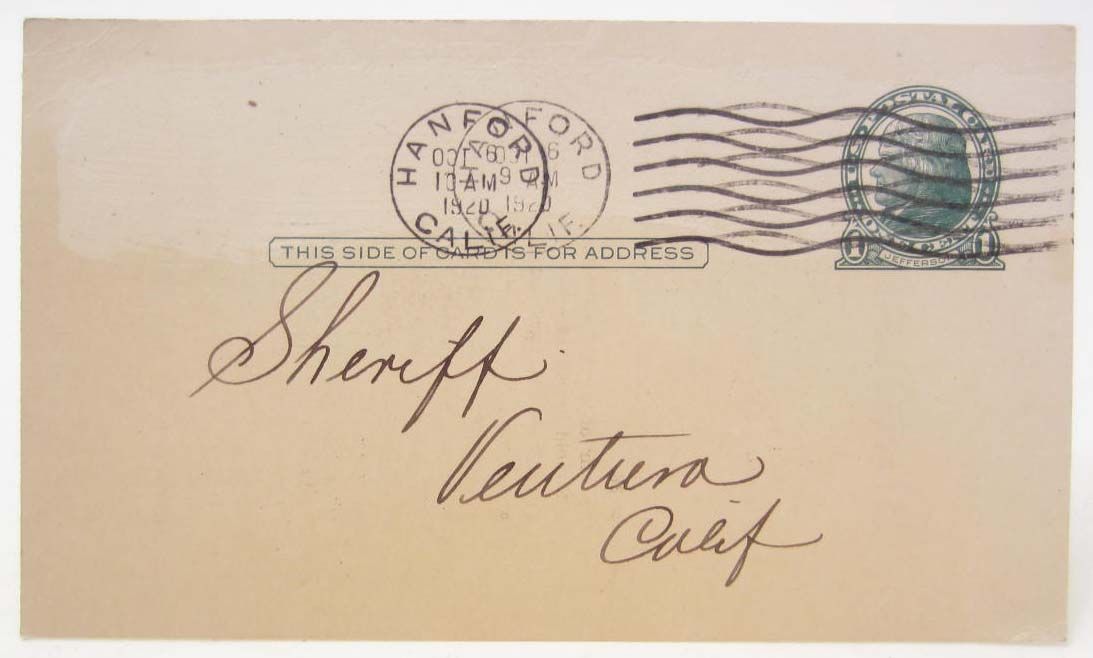 HANFORD
OCT 6
10 AM
1920
CALIF.
FORD
OCT 6
9 AM
1920
CALIF.
U.S. POSTAL CARD
ONE CENT
1 1
JEFFERSON
THIS SIDE OF CARD IS FOR ADDRESS
Sheriff
Ventura
Calif